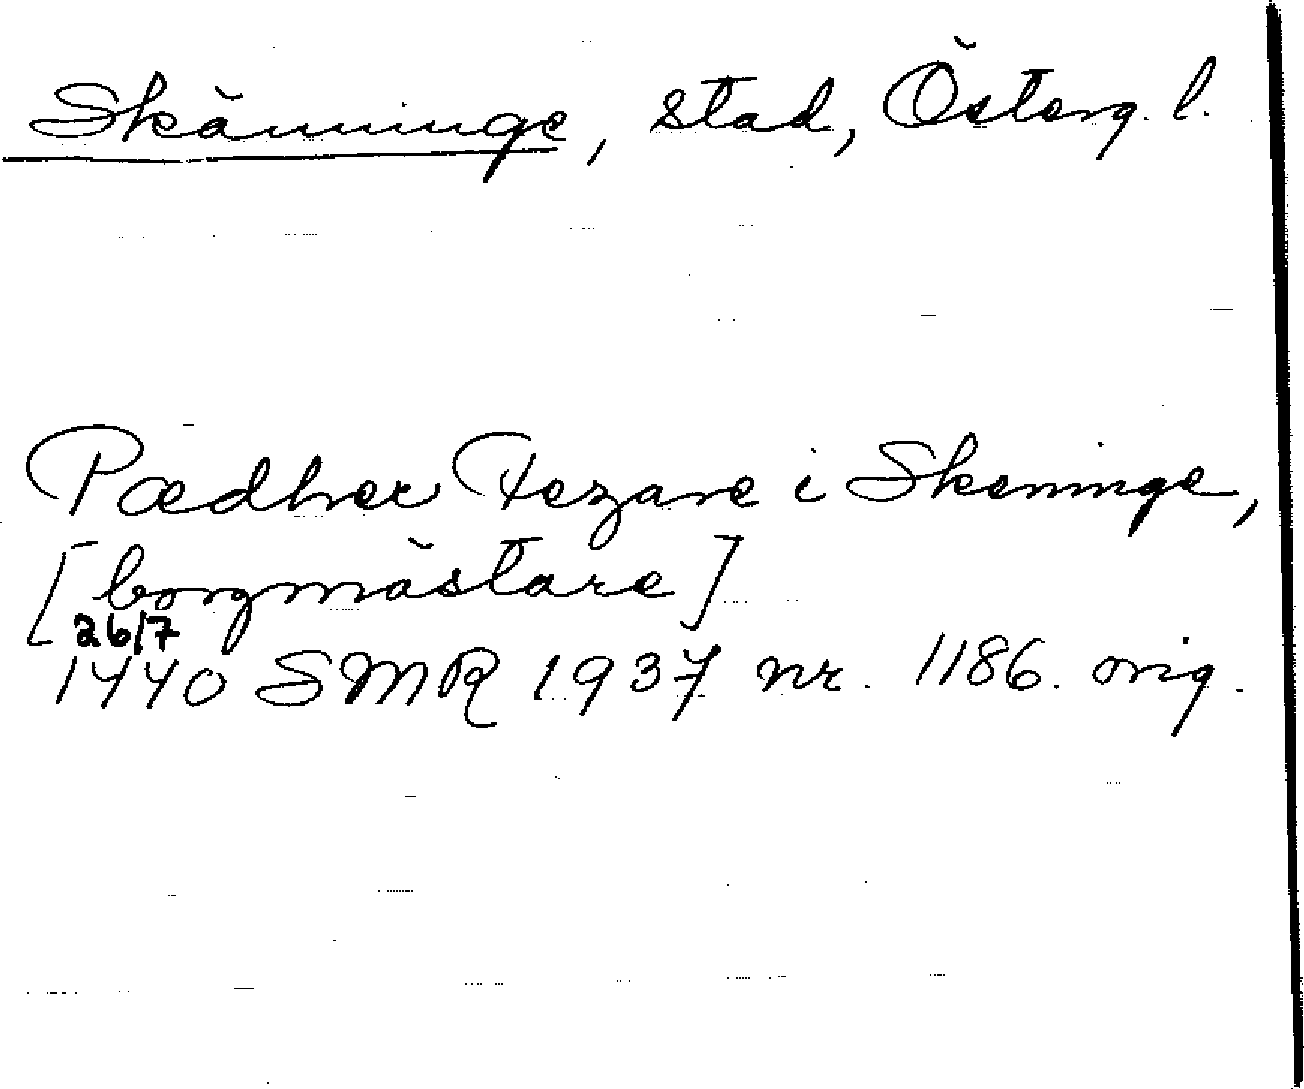 Skänninge, stad, Österg. l.
Pædher Fezare i Skeninge,
[borgmästare]
26/7
1440 SMR 1937 nr. 1186. orig.